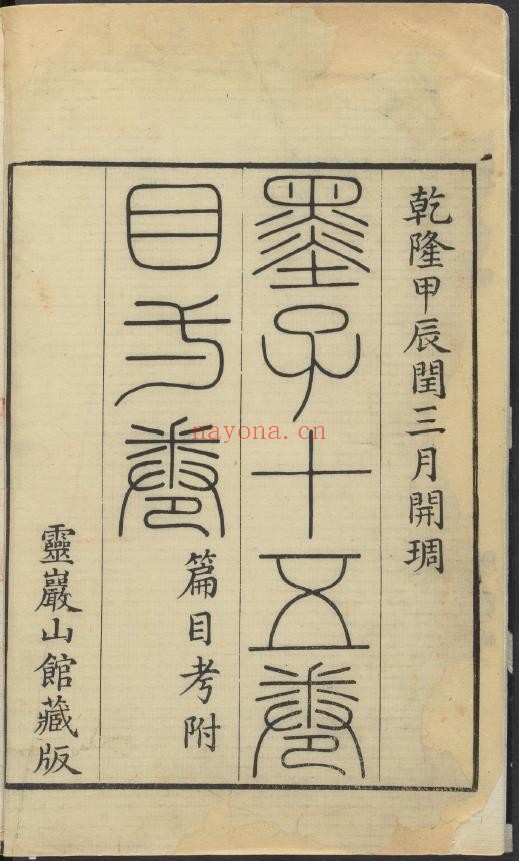 乾隆甲辰閏三月開琱
墨子十五卷
目一卷
篇目考附
靈巖山館藏版
nayona.cn